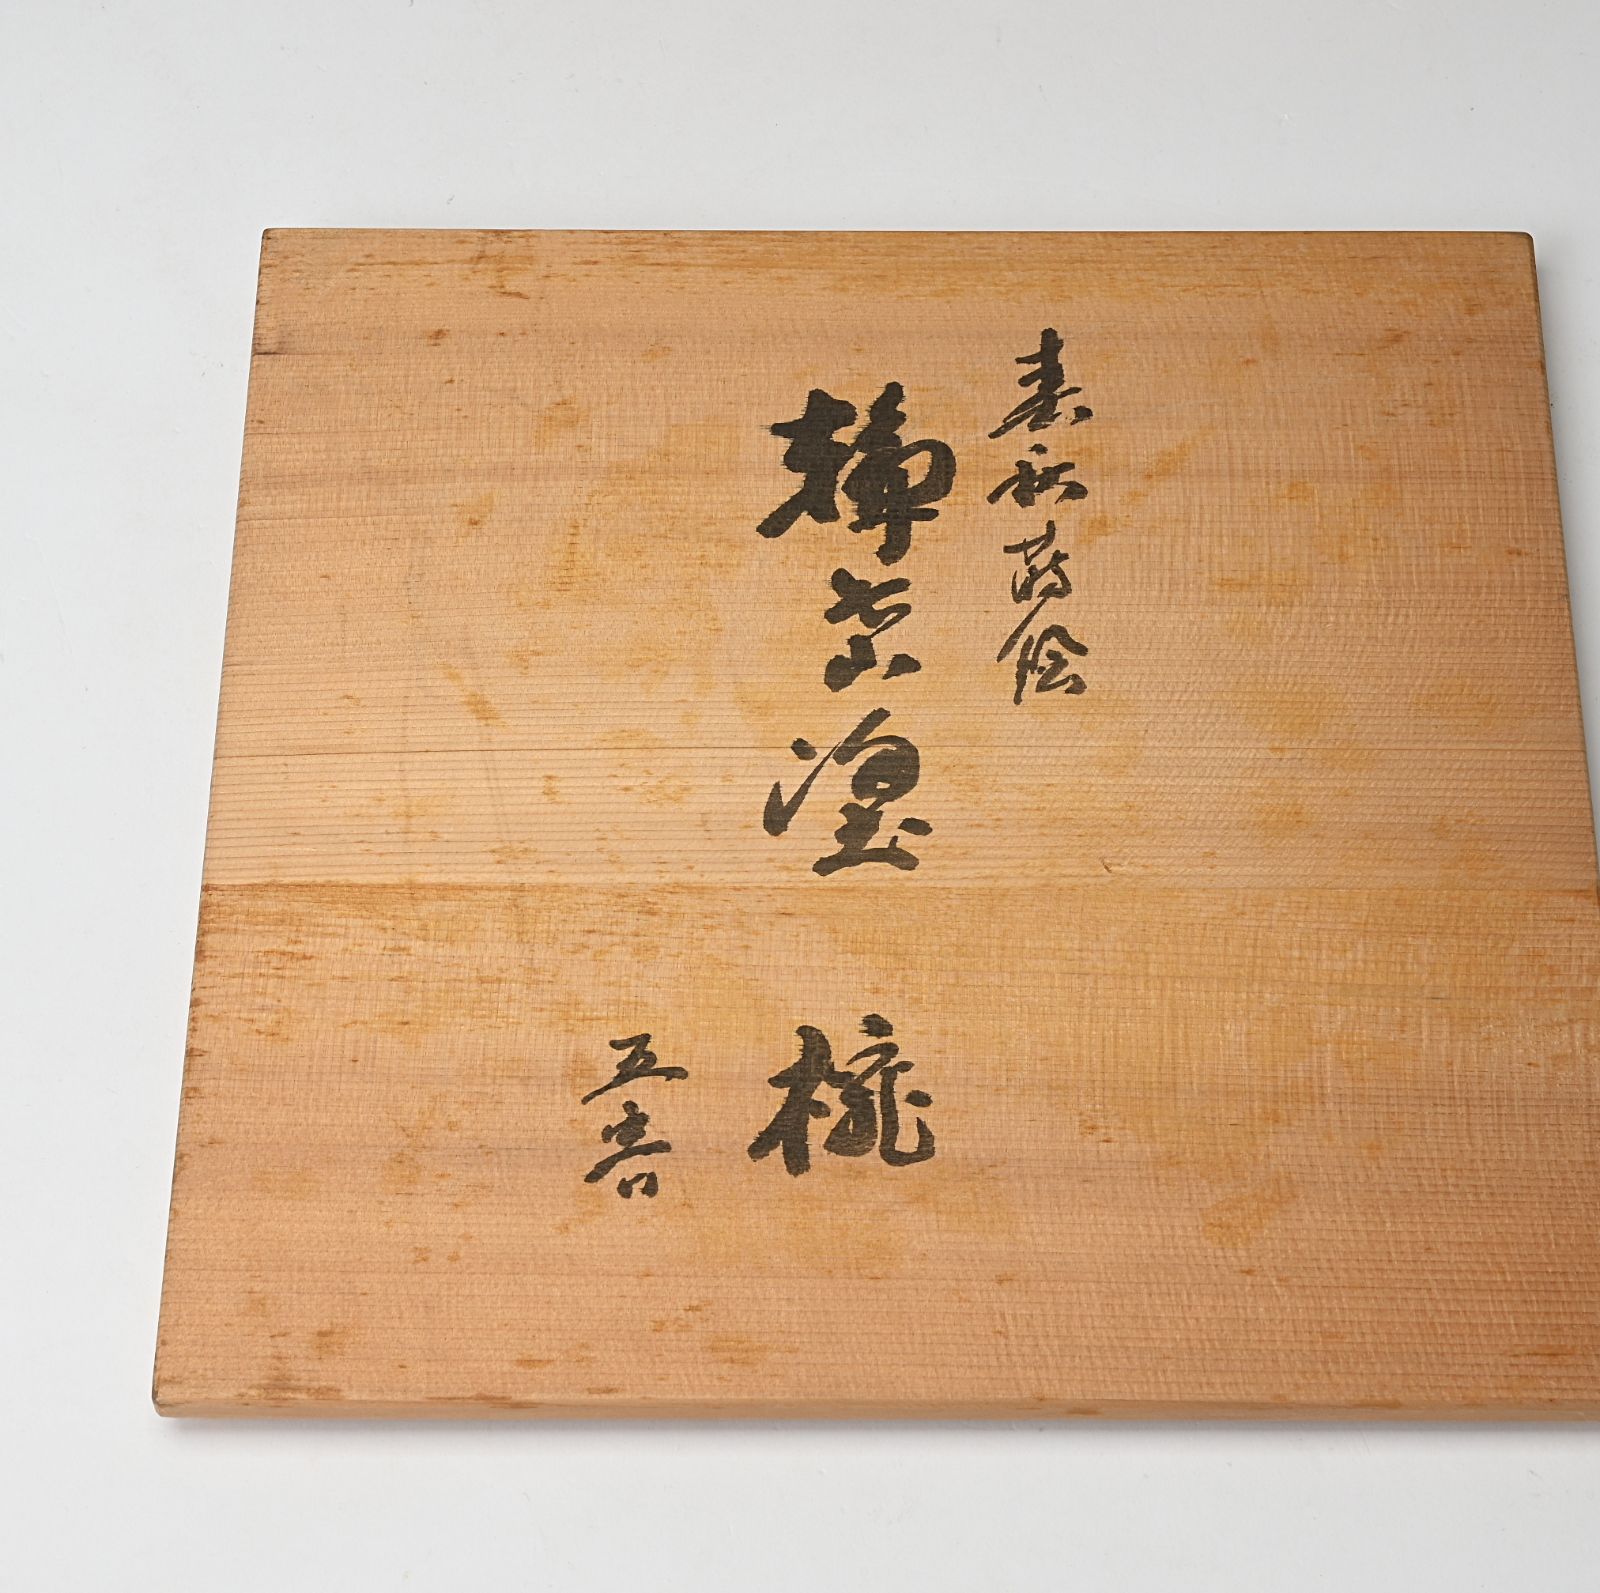 春秋蒔絵
輪島塗 椀
五客